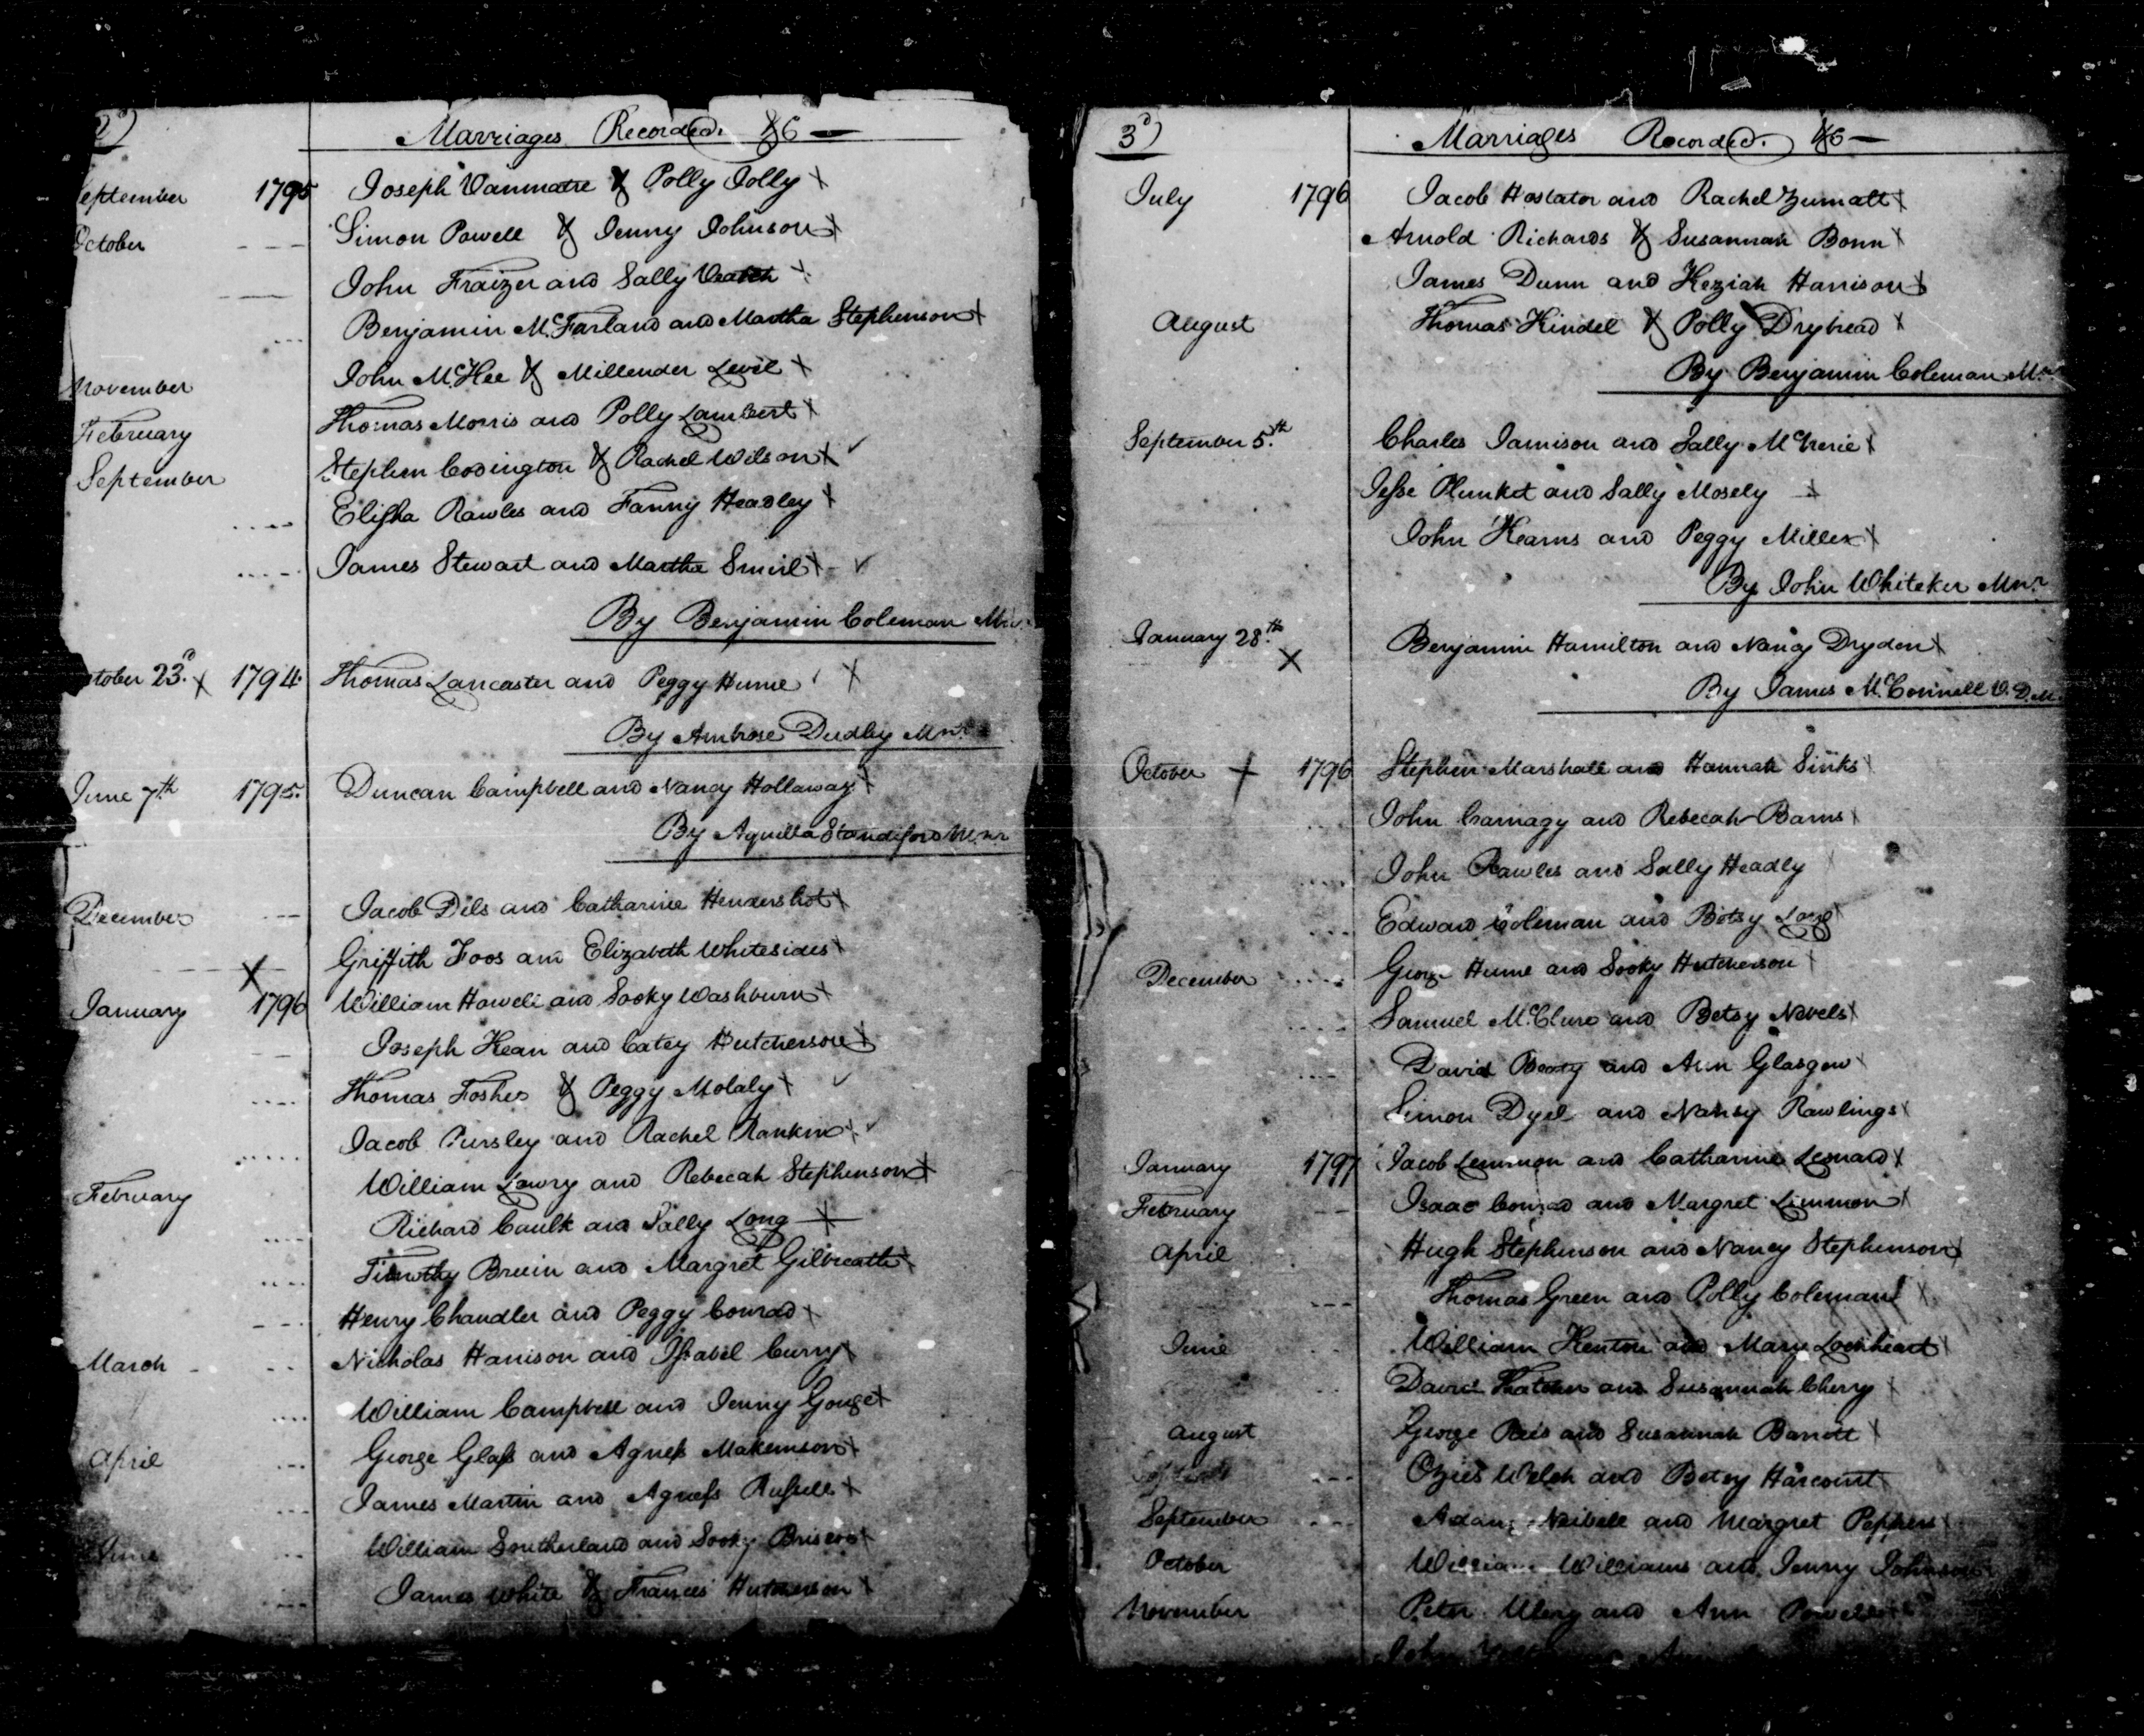 2)
Marriages Recorded. &c —
September 1795 Joseph Vanmatre & Polly Jolly X
October Simon Powell & Jenny Johnson X
John Fraizer and Sally Veatch X
Benjamin McFarland and Martha Stephenson X
November John McKee & Millender Levil X
February Thomas Morris and Polly Lambert X
September Stephen Codington & Rachel Wilson X
Elisha Rawles and Fanny Headley X
James Stewart and Martha Smirl X
By Benjamin Coleman
October 23d. X 1794. Thomas Lancaster and Peggy Hume X
By Ambrose Dudley Mnr.
June 7th 1795. Duncan Campbell and Nancy Hollaway X
By Aquilla Standiford Mnr
December Jacob Dils and Catharine Hendershot X
X Griffith Foos and Elizabeth Whitesides X
January 1796 William Howell and Sooky Washburn X
Joseph Kean and Catey Hutcherson X
Thomas Foshee & Peggy Molaly X
Jacob Pursley and Rachel Rankin X
February William Lowry and Rebecah Stephenson X
Richard Caulk and Sally Long X
Timothy Bruin and Margret Gilbreath X
Henry Chandler and Peggy Conrad X
March Nicholas Harrison and Issabel Curry X
William Campbell and Jenny Gouge X
April George Glass and Agness Makemson X
James Martin and Agness Russell X
June William Southerland and Sooky Briscoe X
James White & Frances Hutcherson X
3d)
Marriages Recorded. &c —
July 1796 Jacob Hostator and Rachel Zumalt X
Arnold Richards & Susannah Bonn X
James Dunn and Keziah Harrison X
August Thomas Kindel & Polly Drybread X
By Benjamin Coleman Mnr
September 5.th Charles Jamison and Sally McNerie X
Jesse Plunket and Sally Mosely X
John Kearns and Peggy Miller X
By John Whiteker Mnr.
January 28.th X Benjamin Hamilton and Nancy Dryden X
By James McConnell V. D. M.
October + 1796 Stephen Marshall and Hannah Sinks X
John Carnagy and Rebecah Barns X
John Rawles and Sally Headly
Edward Coleman and Betsy Long X
December George Hume and Sooky Hutcherson X
Samuel McClure and Betsy Nevels X
David Beaty and Ann Glasgow X
Simon Dyel and Nansy Rawlings X
January 1797 Jacob Lemmon and Catharine Lesnard X
February Isaac Conrad and Margret Limmon X
April Hugh Stephenson and Nancy Stephenson X
Thomas Green and Polly Coleman X
June William Henton and Mary Lockheart X
David Thatcher and Susannah Cherry X
August George Reed and Susannah Barrott X
Ozies Welch and Betsy Harcourt
September Adam Neibell and Margret Peppers X
October William Williams and Jenny Johnson
November Peter Ulery and Ann Powell
John